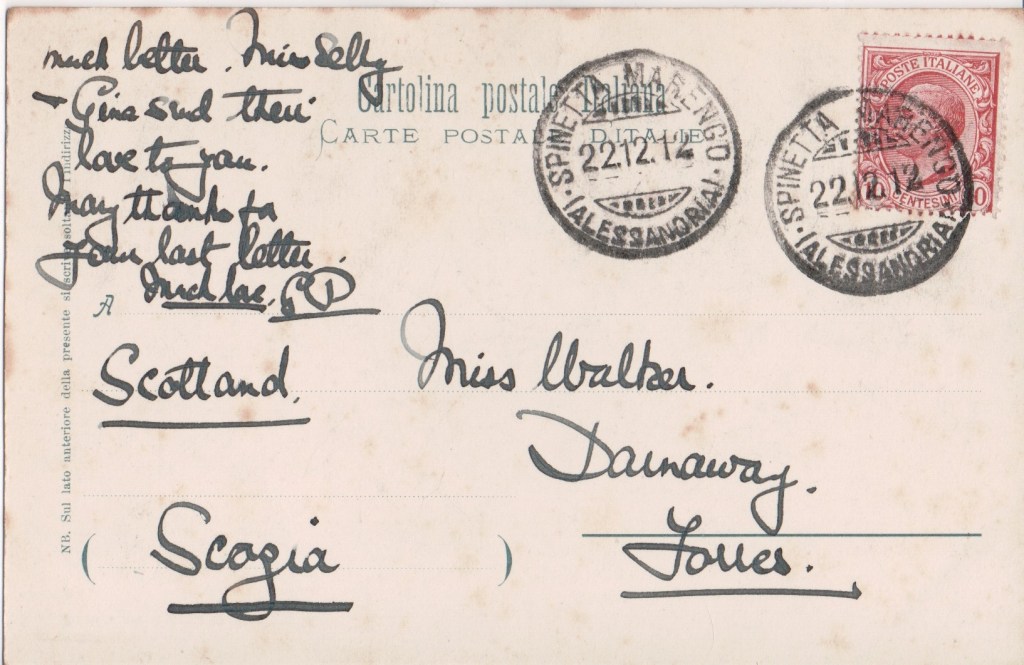 much better. Miss Selby
Gina send their
love to you.
Many thanks for
your last letter.
Much love, GP
Cartolina postale Italiana
CARTE POSTALE D'ITALIE
SPINETTA MARENGO
22.12.12
(ALESSANDRIA)
SPINETTA MARENGO
22.12.12
(ALESSANDRIA)
POSTE ITALIANE
CENTESIMI
A
Miss Walker.
Scotland.
Darnaway.
Forres.
(Scozia)
NB. Sul lato anteriore della presente si scrive soltanto l'indirizzo